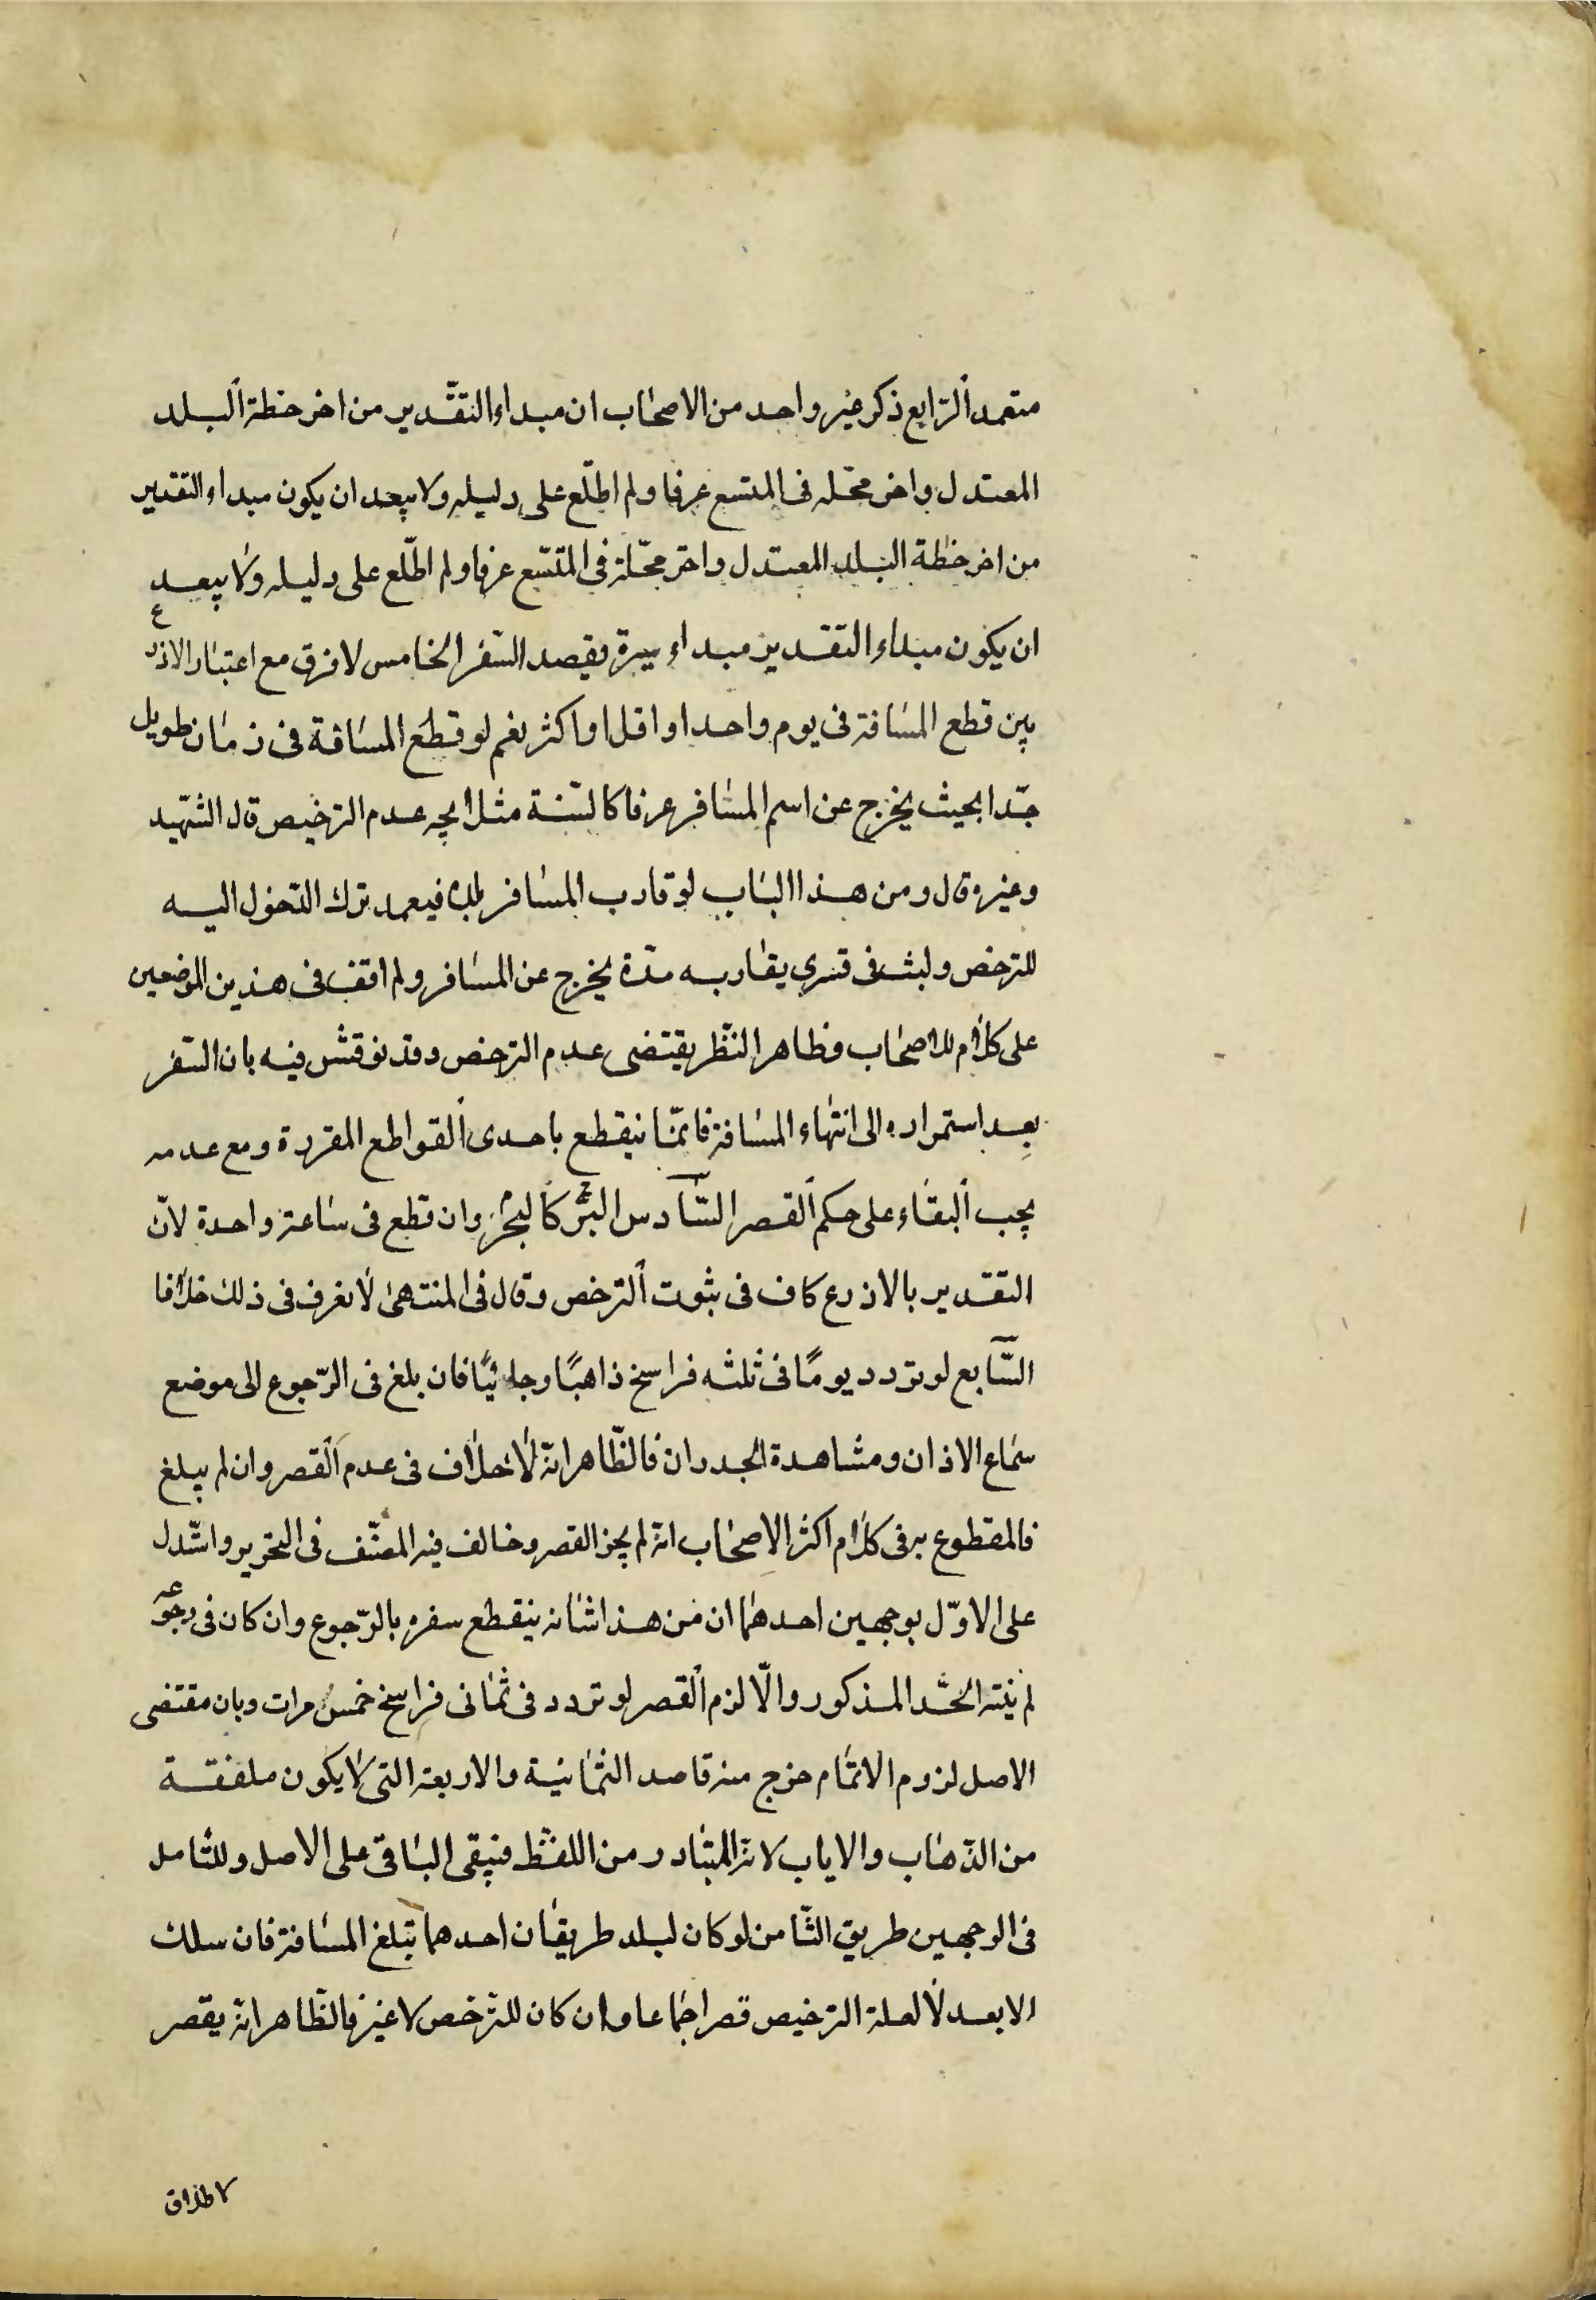 متعمد الرّابع ذكر غير واحد من الاصحاب ان مبداء التقّدير من اخر خطة البلد
المعتدل واخر محّله فى المتسع عرفا ولم اطلّع على دليله ولا يبعد ان يكون مبداء التقدير
من اخر خطة البلد المعتدل واخر محّلة فى المتسّع عرفا ولم اطلّع على دليله ولا يبعد
ان يكون مبداء التقدير مبداء سيره بقصد السّفر الخامس لا فرق مع اعتبار الاذرع
بين قطع المسافة فى يوم واحد او اقل او اكثر نعم لو قطع المسافة فى زمان طويل
جّدا بحيث يخرج عن اسم المسافر عرفا كالسّنة مثلا يجه عدم الترخيص قال الشّهيد
وغيره قال ومن هذا الباب لو قارب المسافر بلده فيعمد ترك الدّخول اليه
للترخص ولبث فى قرى يقاربه مدّة يخرج عن المسافر ولم اقف فى هذين الموضعين
على كلام للاصحاب وظاهر النظّر يقتضى عدم الترخص وقد نوقش فيه بان السّفر
بعد استمراره الى انتهاء المسافة فانمّا ينقطع باحدى القواطع المقررة ومع عدمه
يجب البقاء على حكم القصر السّادس البّر كالبحر وان قطع فى ساعة واحدة لانّ
التقدير بالاذرع كاف فى ثبوت الترخص وقال فى المنتهى لا نعرف فى ذلك خلافا
السّابع لو تردد يومًا فى ثلثه فراسخ ذاهبًا وجائيًا فان بلغ فى الرّجوع الى موضع
سماع الاذان ومشاهدة الجدران فالظّاهر انّه لا خلاف فى عدم القصر وان لم يبلغ
فالمقطوع به فى كلام اكثر الاصحاب انّه لم يجز القصر وخالف فيه المصنّف فى التحرير واستّدل
على الاوّل بوجهين احدهما ان من هذا شانه ينقطع سفره بالرّجوع وان كان فى رجوعه
لم ينته الحّد المذكور والّا لزم القصر لو تردد فى ثمانى فراسخ خمس مرات وبان مقتضى
الاصل لزوم الاتمام خرج منه قاصد الثمانية والاربعة التى لا يكون ملفقة
من الذّهاب والاياب لانّه المتبادر من اللفظ فيبقى الباقى على الاصل وللتامل
فى الوجهين طريق الثّامن لو كان لبلد طريقان احدهما تبلغ المسافة فان سلك
الابعد لا لعلة الترخيص قصر اجماعا وان كان للترّخص لا غير فالظّاهر انّه يقصر
لاطلاق